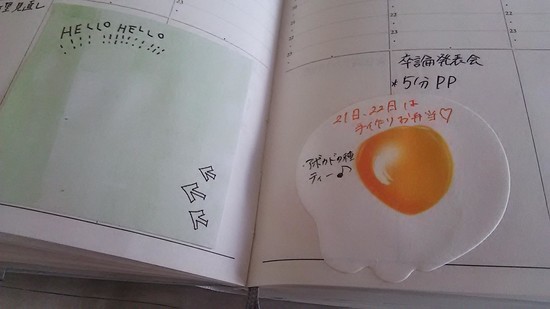 見直し
HELLO HELLO
22
23
22
23
22
23
卒論発表会
*5分PP
21日、22日は
手作りお弁当♡
アボカドの種
ティー♪